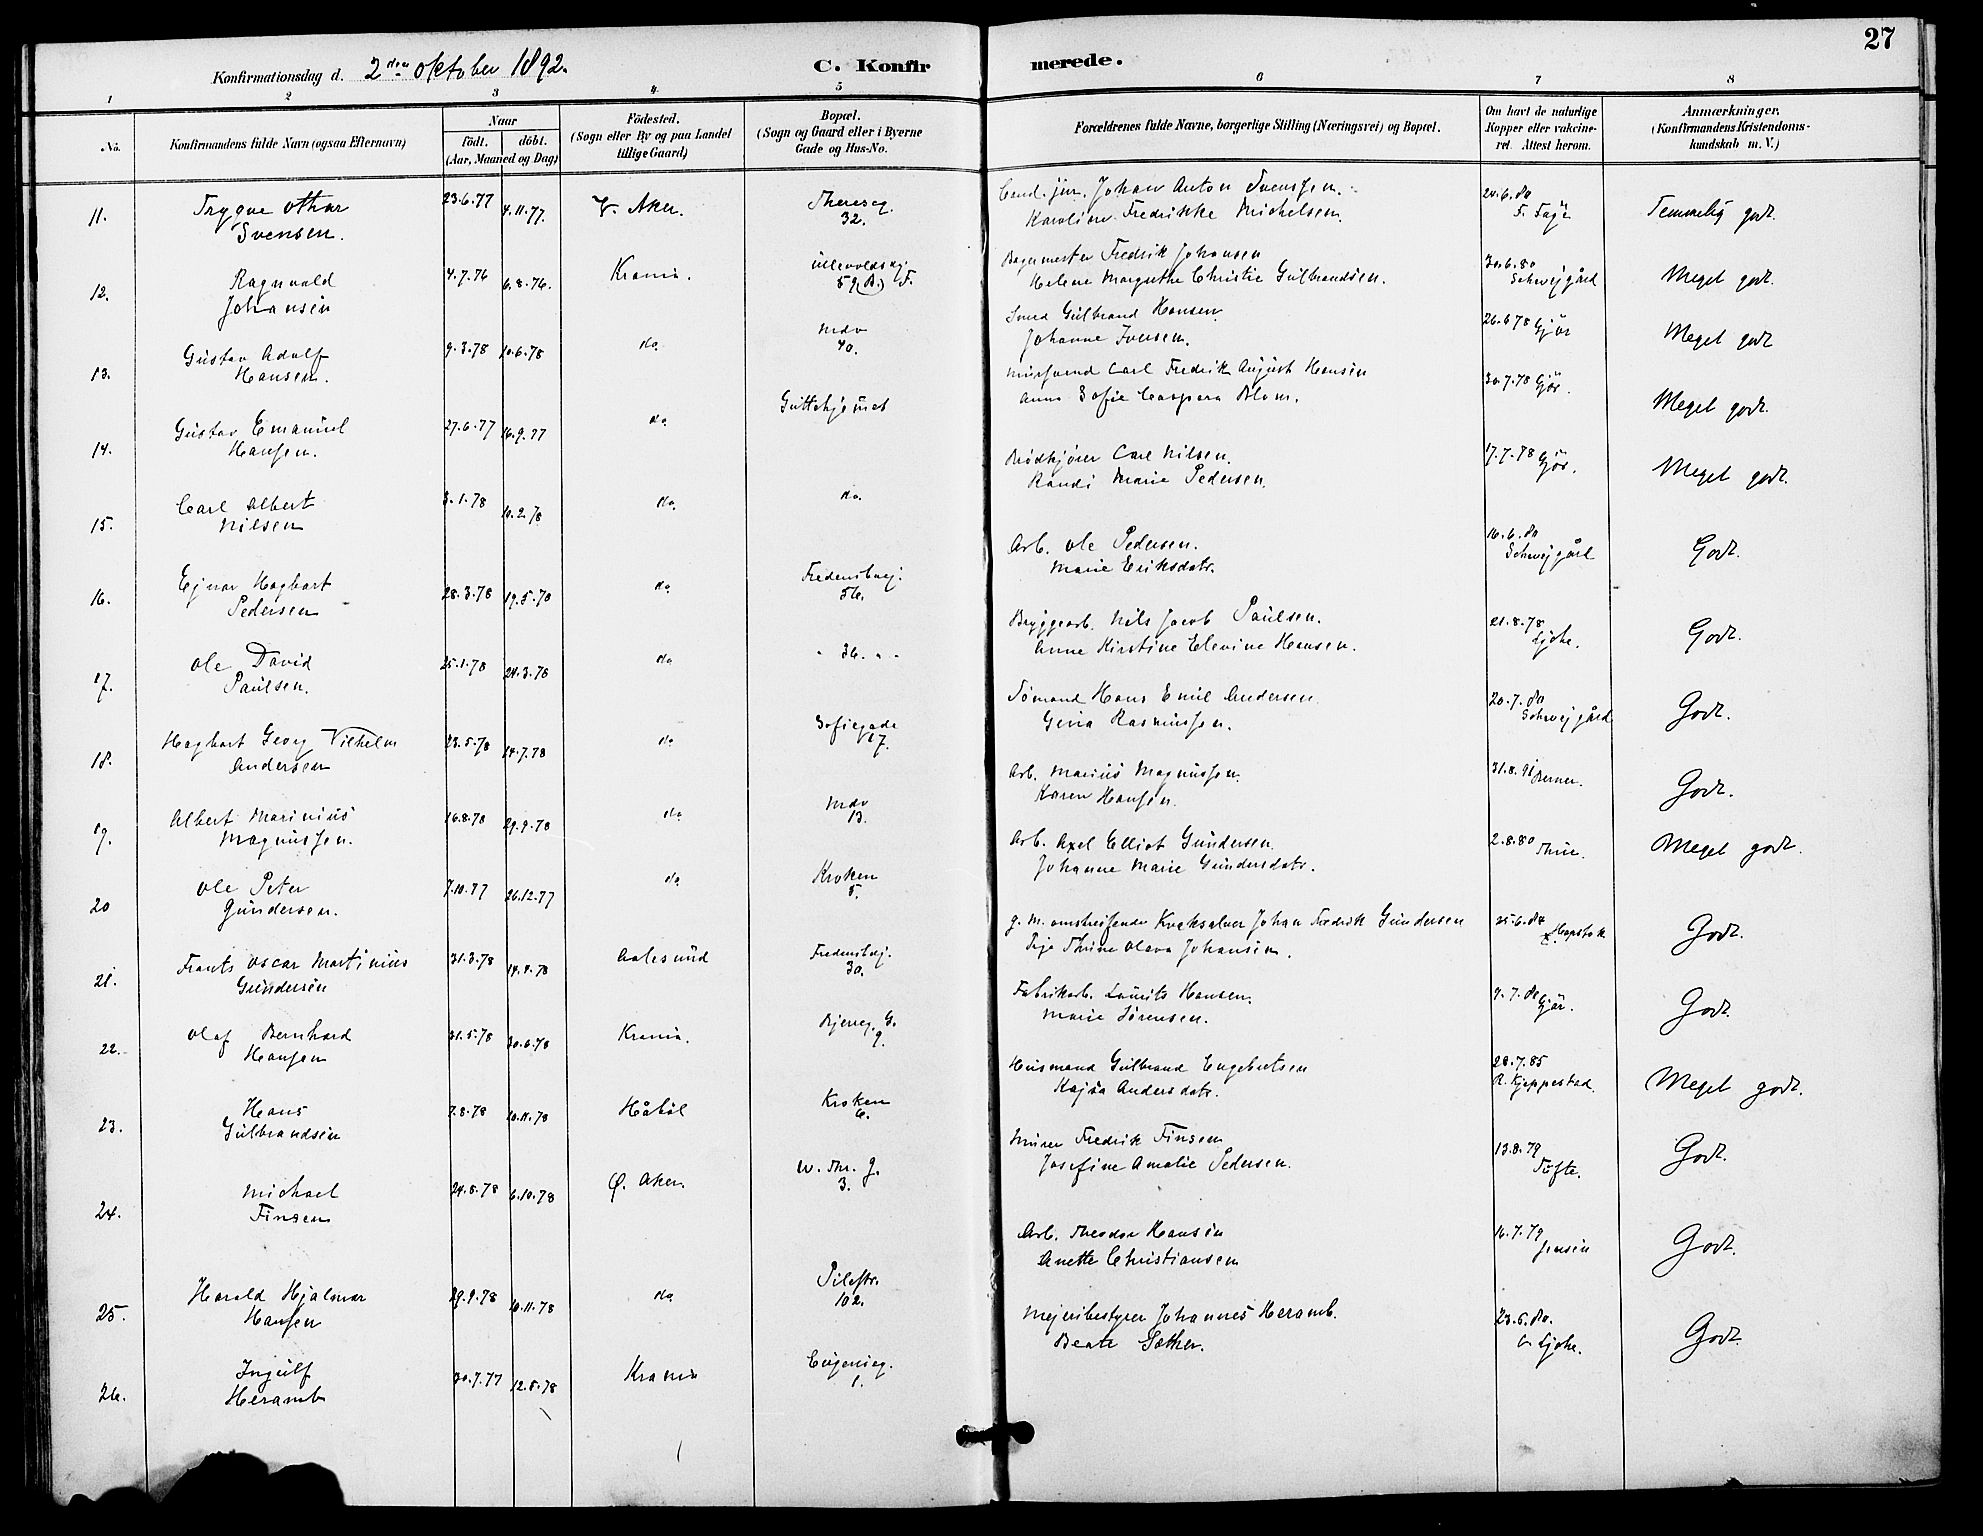 27
Konfirmationsdag d. 2den oktober 1892.
C. Konfir
merede.
1 2 3 4 5 6 7 8
No.
Konfirmandens fulde Navn (ogsaa Efternavn)
Naar
födt. döbt.
(Aar, Maaned og Dag)
Födested.
(Sogn eller By og paa Landet
tillige Gaard)
Bopæl.
(Sogn og Gaard eller i Byerne
Gade og Hus-No.
Forældrenes fulde Navne, borgerlige Stilling (Næringsvei) og Bopæl.
Om havt de naturlige
Kopper eller vakcine-
ret. Attest herom.
Anmærkninger.
(Konfirmandens Kristendoms-
kundskab m. V.)
11. Trygve Othar
Svensen.
23.6.77 4.11.77. V. Aker. Thereseg.
32.
Cand. jur. Johan Anton Svenssen.
Karoline Fredrikke Michelsen.
20.6.80
Temmelig godt.
12. Ragnvald
Johansen
4.7.76 6.8.76. Krania. Ullevoldsvj.
59 (B.) F.
Bagermester Fredrik Johansen
Helene Margrethe Christie Gulbrandsen.
30.6.80
Schweigård
Meget godt.
13. Gustav Adolf
Hansen.
9.3.78 10.6.78 do. Mdv
40.
Smed Gulbrand Hansen
Johanne Iversen.
26.6 78 Gjör
Meget godt
14. Gustav Emanuel
Hansen.
27.6.77 16.9.77 do. Guttehjemet
Mursvend Carl Fredrik August Hansen
Anna Sofie Caspara Blom.
30.7.78 Gjör.
Meget godt.
15. Carl Albert
Nilsen
3.1.78 10.2.78 do. do.
Brödkjører Carl Nilsen.
Randi Marie Pedersen.
17.7.78 Gjör.
Meget godt.
16. Ejnar Hagbart
Pedersen
28.3.78 19.5.78 do. Fredensbvej.
56.
Arb. Ole Pedersen.
Marie Eriksdatr.
16.6.80
Schweigård
Godt.
17. Ole David
Paulsen.
25.1.78 24.3.78 do. " 36. " "
Bryggearb. Nils Jacob Paulsen.
Anne Kirstine Elevine Hansen.
21.8.78
Ljche.
Godt.
18. Hagbart Georg Vilhelm
Andersen
23.5.78 14.7.78 do. Sofiegade
17.
Tømand Hans Emil Andersen
Gina Rasmussen.
20.7.80
Schweigård
Godt.
19. Albert Marinius
Magnussen.
16.8.78 29.9.78 do. Mdv
13.
Arb. Marius Magnussen.
Karen Hansen.
31.8.91 Berner.
Godt.
20 Ole Peter
Gundersen.
7.10.77 26.12.77 do. Kroken
5.
Arb. Axel Elliot Gundersen.
Johanne Marie Gundersdatr.
2.8.80 Thue.
Meget godt.
21. Frants Oscar Martinius
Gundersen
31.3.78 14.4.78 Aalesund Fredensbvj.
30.
g. M. omstreifende Kvaksalver Johan Fredrik Gundersen
Pige Thrine Olava Johansen.
25.6.84
Godt.
22. Olaf Bernhard
Hansen
31.5.78 30.6.78 Krania. Bjerreg. G.
9.
Fabrikarb. Laurits Hansen.
Marie Sørensen.
7.7.80 Gjör.
Godt.
23. Hans
Gulbrandsen
7.8.78 10.11.78 Håböl Kroken
6.
Husmand Gulbrand Engebretsen
Kajsa Andersdatr.
28.7.85
R. Kjeppestad
Meget godt.
24. Michael
Finsen
24.8.78 6.10.78 Ø. Aker. W. Thr. g.
3.
Murer Fredrik Finsen
Josefine Amalie Pedersen.
13.8.79
Tufte.
Godt.
25. Harald Hjalmar
Hansen
29.9.78 10.11.78 do. Pilestr.
102.
Arb. Theodor Hansen
Anette Christiansen
16.7.79
Jensen
Godt.
26. Ingulf
Heramb
30.7.77 12.5.78 Krania Eugenieg.
1.
Mejeribestyrer Johannes Heramb.
Beate Sæther.
23.6.80.
Ljche.
Godt.